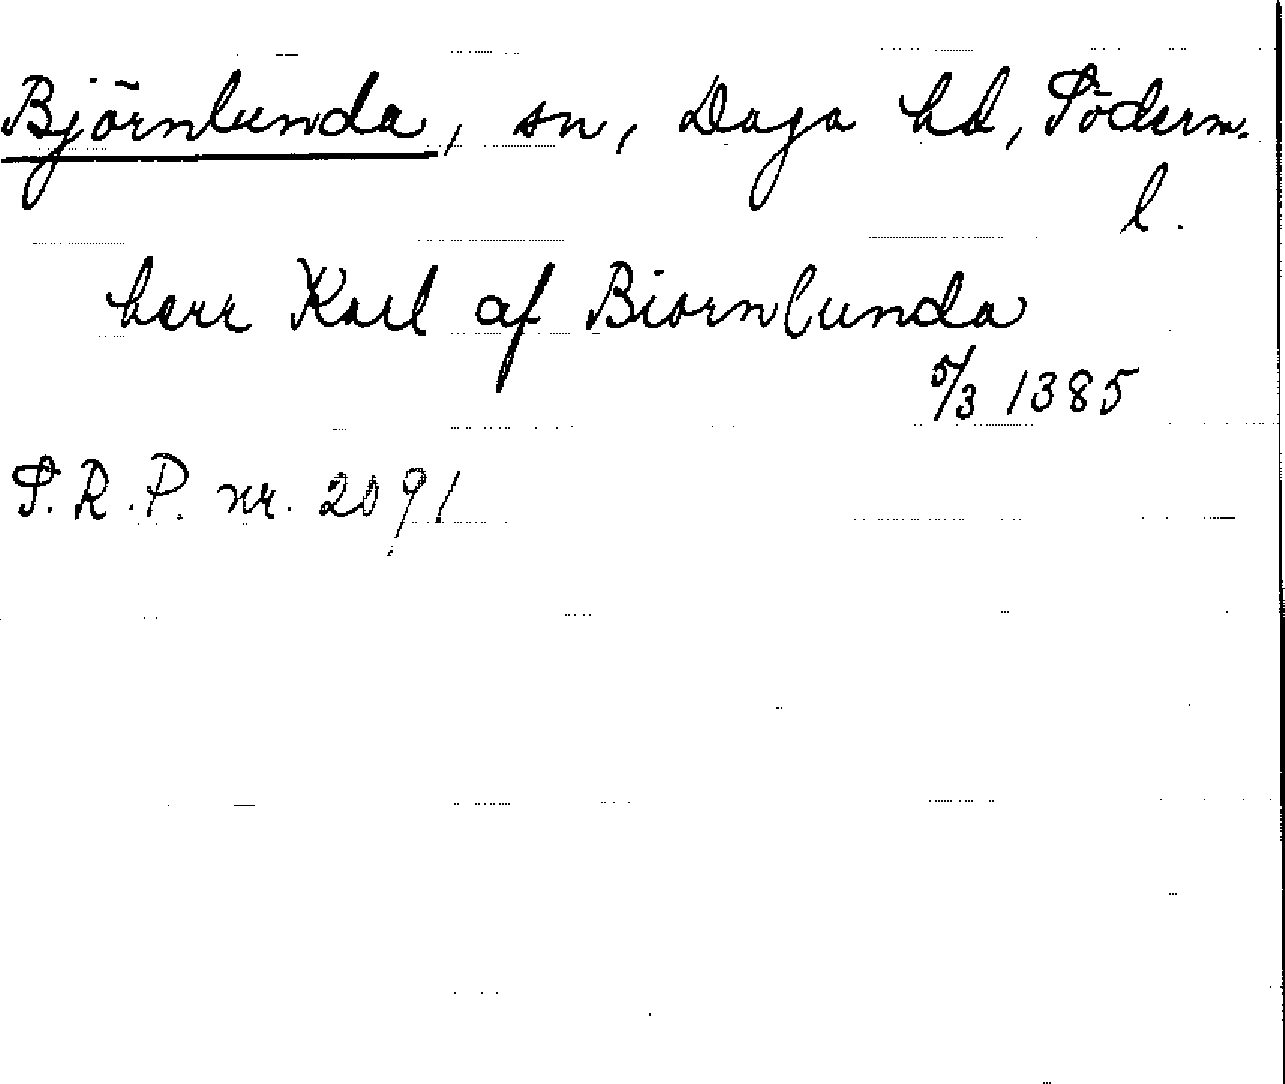 Björnlunda, sn, Daga hd, Söderm.
l.
herr Karl af Biornlunda
5/3 1385
S.R.P. nr. 2091